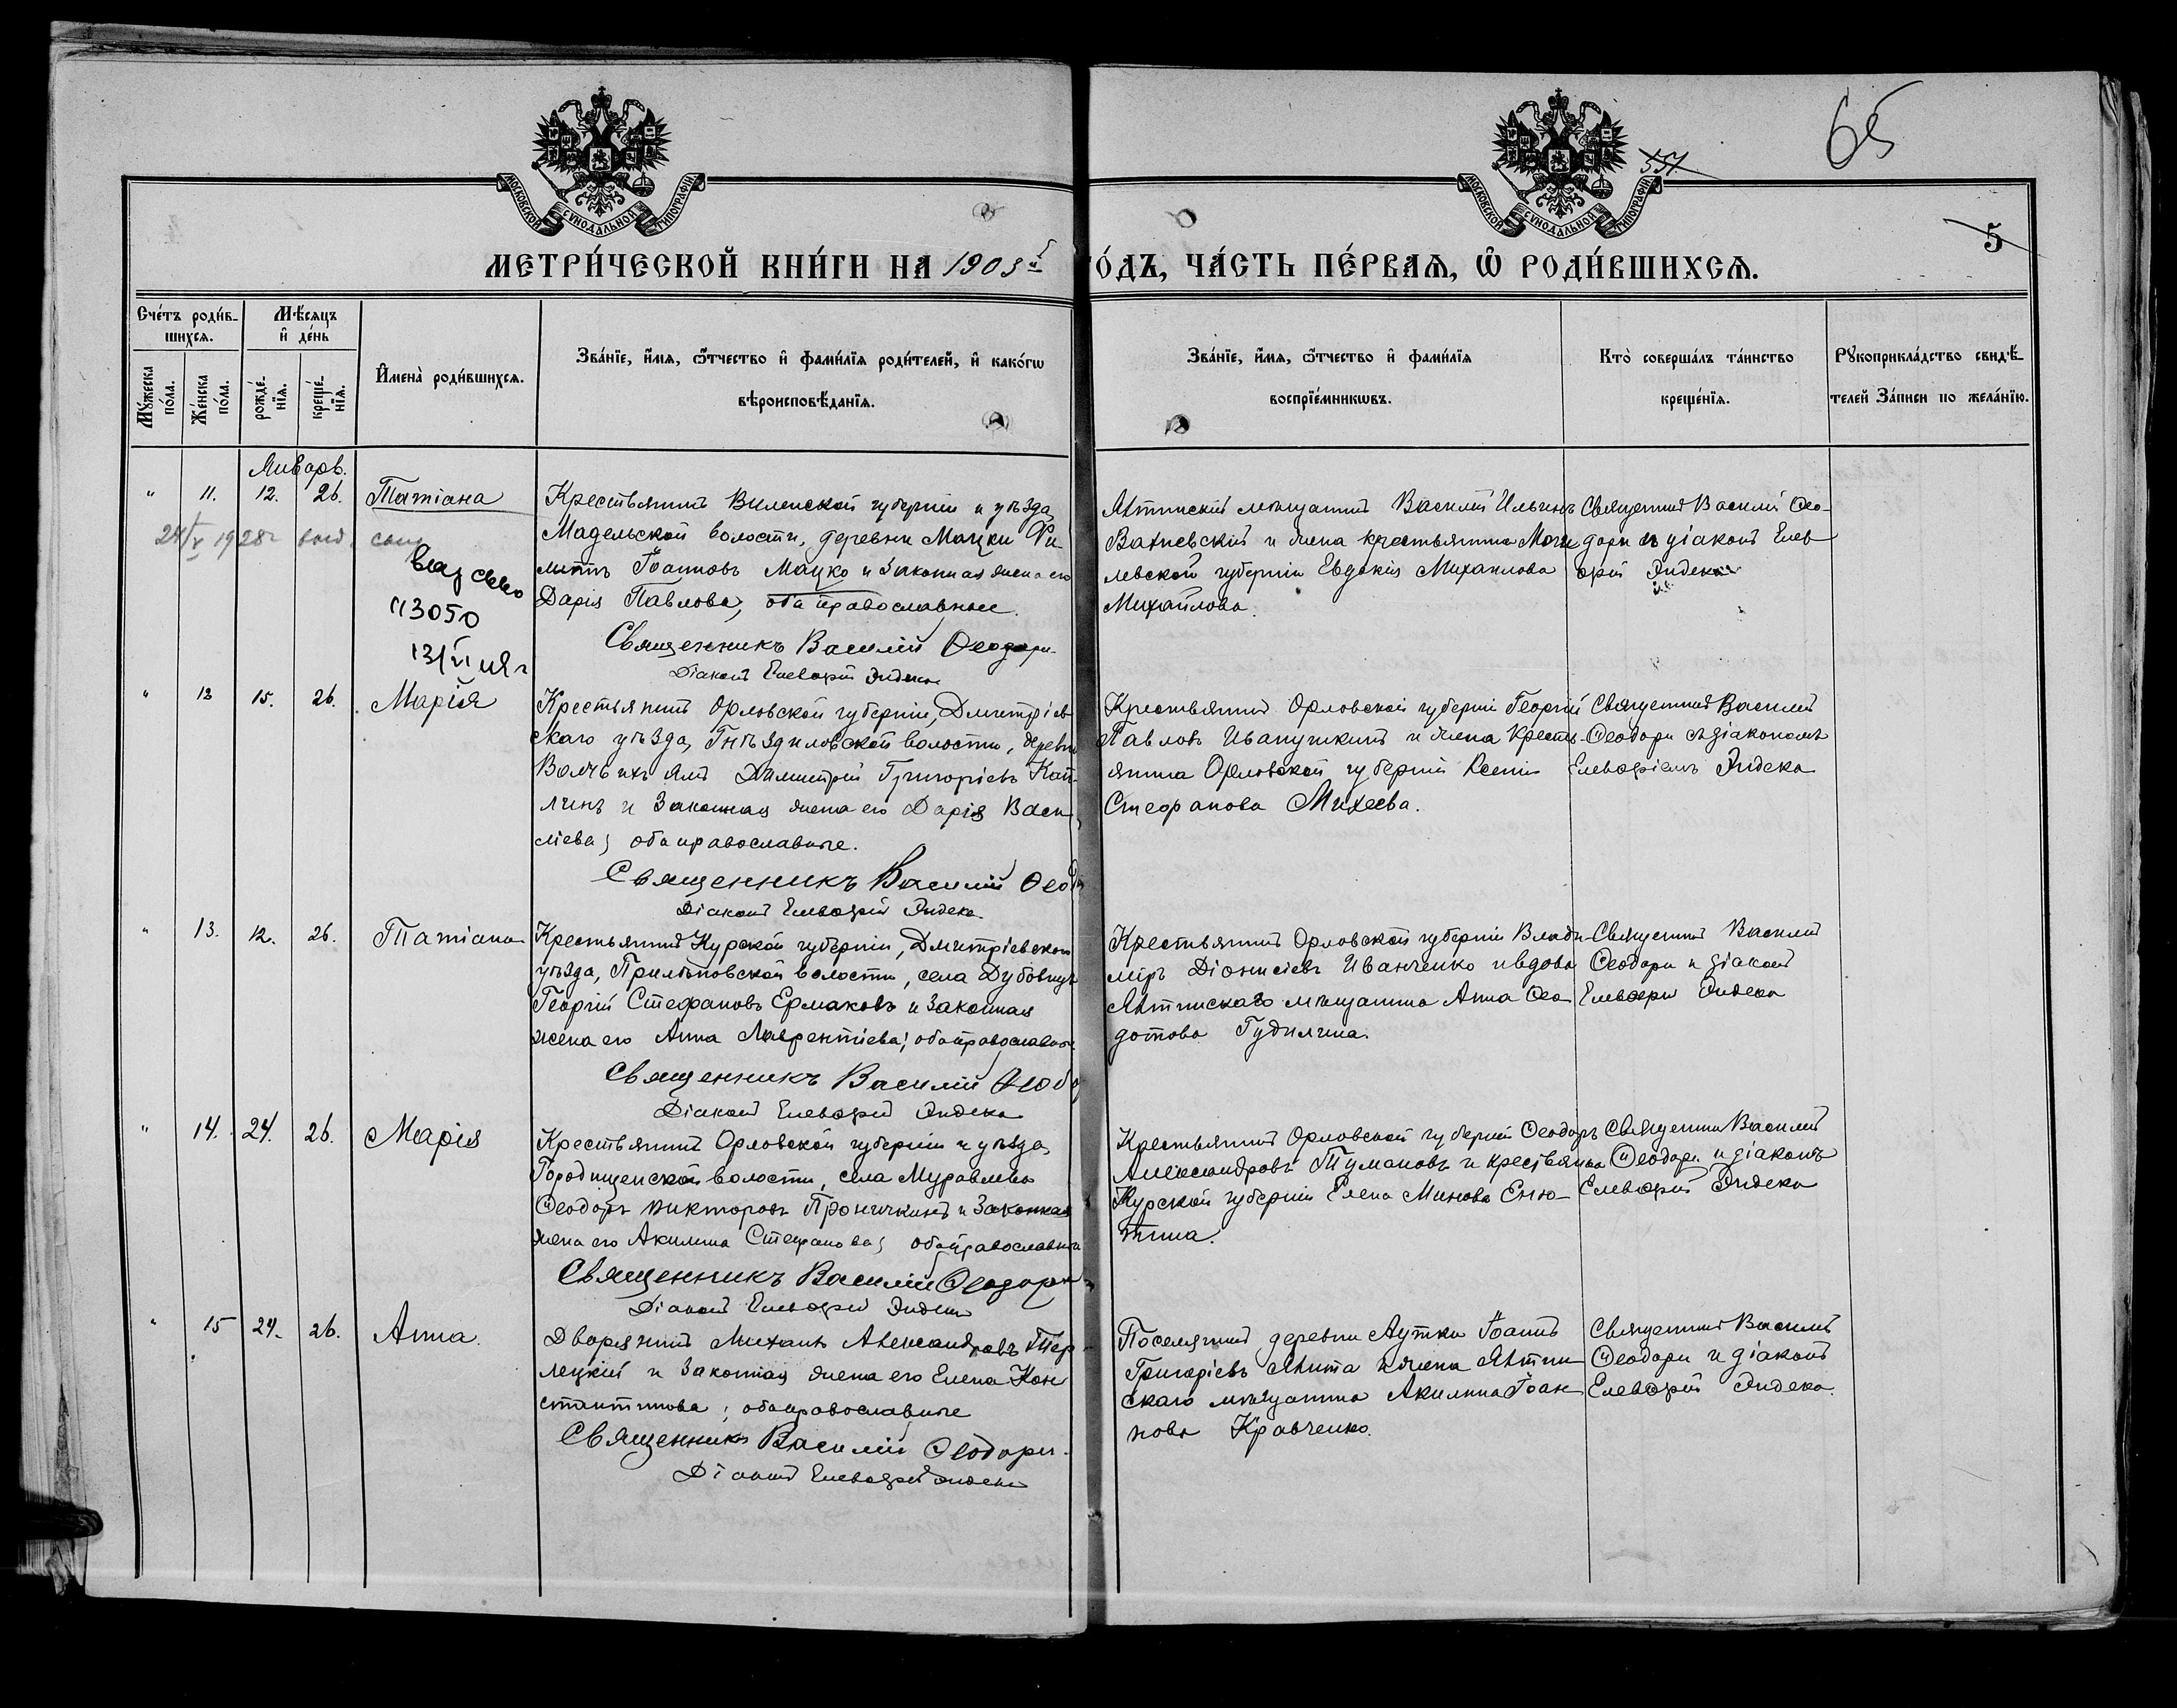 65
551.
МОСКОВСКОЙ СѴНОДАЛЬНОЙ ТИПОГРАФІИ
МОСКОВСКОЙ СѴНОДАЛЬНОЙ ТИПОГРАФІИ
5
МЕТРИ́ЧЕСКОЙ КНИ́ГИ НА 1903й
ГО́ДЪ, ЧА́СТЬ ПЕ́РВАѦ, Ѡ҆ РОДИ́ВШИХСѦ.
Сче́тъ роди́в-
шихсѧ.
Мꙋ́жеска по́ла.
Же́нска по́ла.
Мѣ́сѧцъ и҆ де́нь
рожде́-нїѧ.
креще́-нїѧ.
И҆мена̀ роди́вшихсѧ.
Зва́нїе, и҆́мѧ, ѻ҆́тчество и҆ фами́лїѧ роди́телей, и҆ како́гѡ
вѣроисповѣ́данїѧ.
Зва́нїе, и҆́мѧ, ѻ҆́тчество и҆ фами́лїѧ
воспрїе́мникѡвъ.
Кто̀ соверша́лъ та́инство
креще́нїѧ.
Рꙋкоприкла́дство свидѣ́-
телей За́писи по жела́нїю.
Январь.
" 11. 12. 26. Татіана
Крестьянинъ Виленской губерніи и уѣзда,
Мадельской волости, деревни Мацки Фи-
липпъ Іоанновъ Мацко и законная жена его
Дарія Павлова, оба православные.
Священникъ Василій Ѳеодори
Діаконъ Елевѳерій Эндека
Ялтинскій мѣщанинъ Василій Ильинъ
Вахневскій и жена крестьянина Моги-
левской губерніи Евдокія Михаилова
Михайлова.
Священникъ Василій Ѳео-
дори и діаконъ Елев-
ѳерій Эндека
1928г выд.
13050
" 12 15. 26. Марія
Крестьянинъ Орловской губерніи, Дмитріев-
скаго уѣзда, Гнѣздиловской волости, деревни
Волчьихъ Ямъ Димитрій Григоріевъ Кап-
линъ и законная жена его Дарія Васи-
ліева; оба православные.
Священникъ Василій Ѳеодо
Діаконъ Елевѳерій Эндека
Крестьянинъ Орловской губерніи Георгій
Павловъ Иванушкинъ и жена кресть-
янина Орловской губерніи Ксенія
Стефанова Михеева.
Священникъ Василій
Ѳеодори съ діакономъ
Елевѳеріемъ Эндека
" 13. 12. 26. Татіана
Крестьянинъ Курской губерніи, Дмитріевскаго
уѣзда, Прилѣповской волости, села Дубовицъ
Георгій Стефановъ Ермаковъ и законная
жена его Анна Лаврентіева; оба православные.
Священникъ Василій Ѳеодо
Діаконъ Елевѳерій Эндека
Крестьянинъ Орловской губерніи Влади-
міръ Діонисіевъ Иванченко и вдова
Ялтинскаго мѣщанина Анна Ѳео-
дотова Гудилина.
Священникъ Василій
Ѳеодори и діаконъ
Елевѳерій Эндека
" 14. 24. 26. Марія
Крестьянинъ Орловской губерніи и уѣзда,
Городищенской волости, села Муравлева
Ѳеодоръ Викторовъ Проничкинъ и законная
жена его Акилина Стефанова; оба православные
Священникъ Василій Ѳеодори
Діаконъ Елевѳерій Эндека
Крестьянинъ Орловской губерніи Ѳеодоръ
Александровъ Тумановъ и крестьянка
Курской губерніи Елена Минова Еню-
тина.
Священникъ Василій
Ѳеодори и діаконъ
Елевѳерій Эндека
" 15 24. 26. Анна.
Дворянинъ Михаилъ Александровъ Тер-
лецкій и законная жена его Елена Кон-
стантинова; оба православные
Священникъ Василій Ѳеодори.
Діаконъ Елевѳерій Эндека
Поселянинъ деревни Аутки Іоаннъ
Григоріевъ Анита и жена Ялтин-
скаго мѣщанина Акилина Іоан-
нова Кравченко.
Священникъ Василій
Ѳеодори и діаконъ
Елевѳерій Эндека.